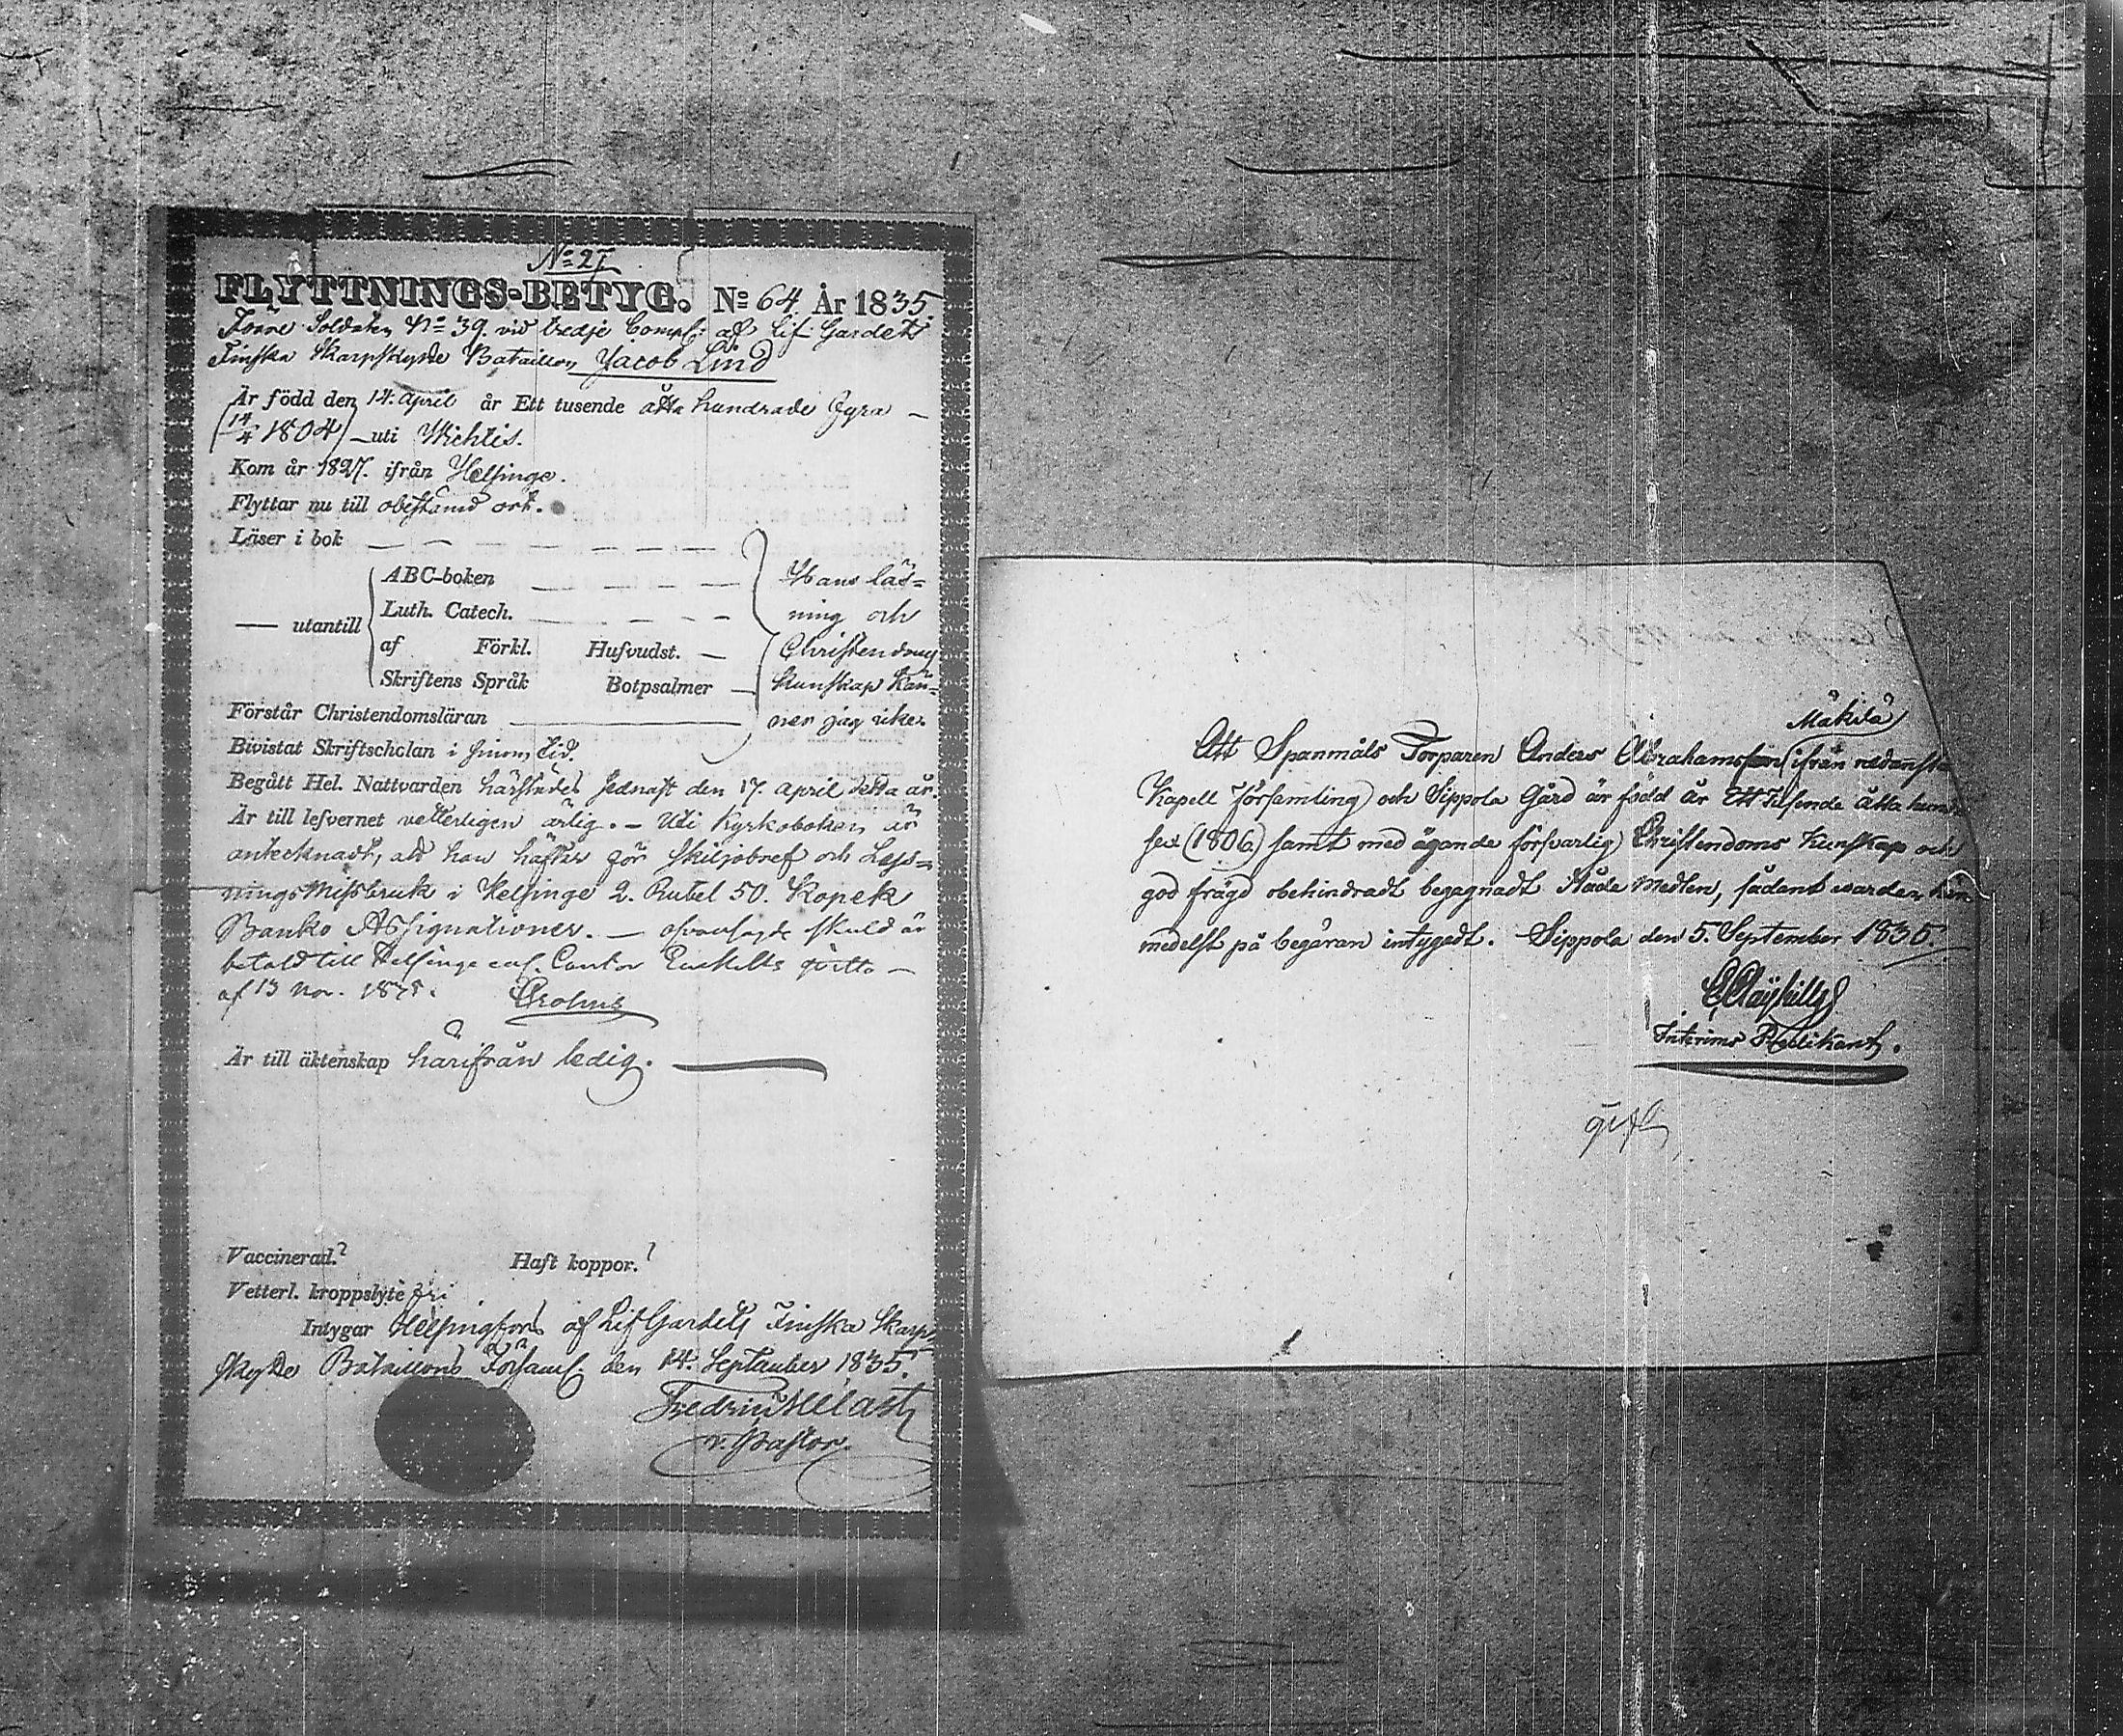 No 27
FLYTTNINGS-BETYG. No 64. År 1835.
Förre Soldaten No 39. vid tredje Comp: af Lif Gardets
Finska Skarpskytte Bataillon, Jacob Lind
Är född den 14. April år Ett tusende åtta hundrade fyra –
(14/4 1804) – uti Wichtis.
Kom år 1827. ifrån Helsinge.
Flyttar nu till obestämd ort.
Läser i bok
ABC-boken
Luth. Catech.
— utantill
af Förkl. Hufvudst. —
Skriftens Språk Botpsalmer —
Förstår Christendomsläran
Hans läs=
ning och
Christendoms
kunskap kän=
ner jag icke.
Bivistat Skriftscholan i sinom tid.
Begått Hel. Nattvarden härstädes sednast den 17. April detta år.
Är till lefvernet vetterligen ärlig. – Uti Kyrkoboken är
antecknadt, att han häftar för skiljobref och Läs=
nings Missbruk i Helsinge 2. Rubel 50. Kopek
Banko Assignationer. — ofvansagde skuld är
betald till Helsinge enl. Cantor qvitto —
af 13 Nov. 1835.
Är till äktenskap härifrån ledig.
Vaccinerad.? Haft koppor.?
Vetterl. kroppslyte fri
Intygar Helsingfors af Lif Gardets Finska Skarp
skytte Bataillons Församl. den 14. September 1835.
v. Pastor.
Mäkilä
Att Spanmåls Torparen Anders Abrahamsson ifrån nedanstå
Kapell Församling och Sippola Gård är född år Ett Tusende åtta hund
sex (1806) samt med ägande försvarlig Christendoms Kunskap och
god frägd obehindradt begagnadt Nåde Medlen, sådant warder här
medelst på begäran intygadt. Sippola den 5. September 1835.
Interims Predikant.